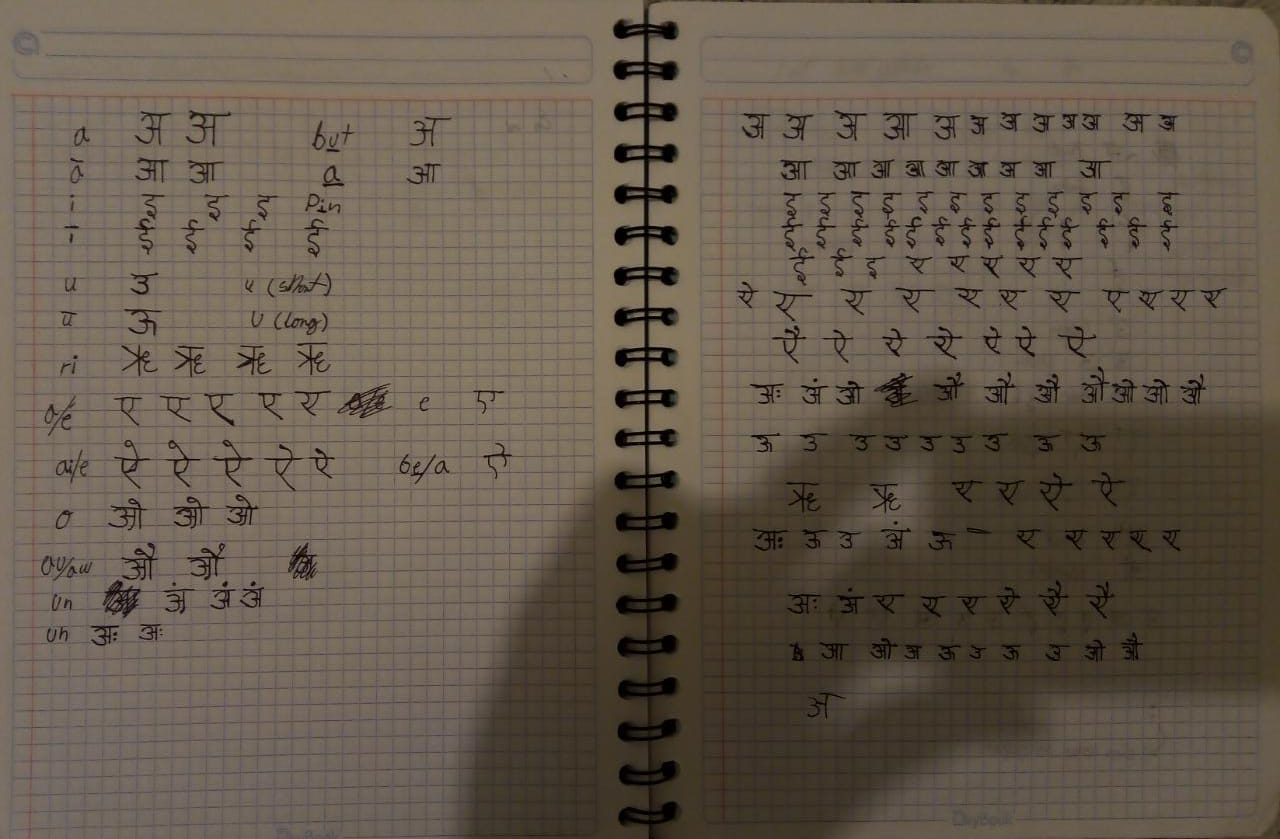 a अ अ but अ
ā आ आ a आ
i इ इ इ Pin
ī ई ई ई ई
u उ u (short)
ū ऊ U (long)
ri ऋ ऋ ऋ ऋ
a/e ए ए ए ए ए e ए
ai/e ऐ ऐ ऐ ऐ ऐ be/a ऐ
o ओ ओ ओ
au/aw औ औ
un अं अं अं
uh अः अः
अ अ अ आ अ अ अ अ अ अ अ अ
आ आ आ आ आ आ आ आ आ
इ इ इ इ इ इ इ इ इ इ इ इ
ई ई ई ई ई ई ई ई ई ई ई ई
ई ई इ ए ए ए ए ए
ऐ ए ए ए ए ए ए ए ए ए ए
ऐ ऐ ऐ ऐ ऐ ऐ ऐ
अः अं ओ औ औ औ औ ओ ओ औ
ऊ उ उ उ उ उ उ ऊ ऊ
ऋ ऋ ए ए ऐ ऐ
अः ऊ उ अं ऊ ए ए ए ए ए
अः अं ए ए ए ऐ ऐ ऐ
आ ओ अ ऊ उ ऊ उ ओ औ
अ